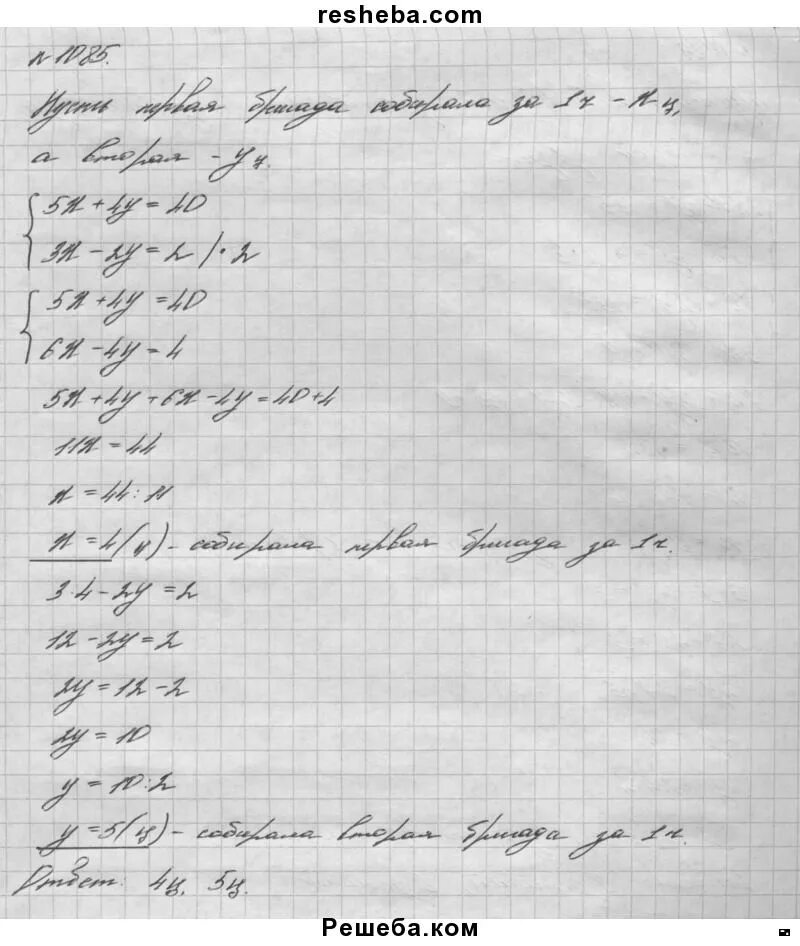 resheba.com
№1085.
Пусть первая бригада собирала за 1ч – x ц,
а вторая – y ц.
5x + 4y = 40
3x – 2y = 2 | · 2
5x + 4y = 40
6x – 4y = 4
5x + 4y + 6x – 4y = 40 + 4
11x = 44
x = 44 : 11
x = 4 (ц) – собирала первая бригада за 1ч.
3 · 4 – 2y = 2
12 – 2y = 2
2y = 12 – 2
2y = 10
y = 10 : 2
y = 5 (ц) – собирала вторая бригада за 1ч.
Ответ: 4ц, 5ц.
Решеба.ком